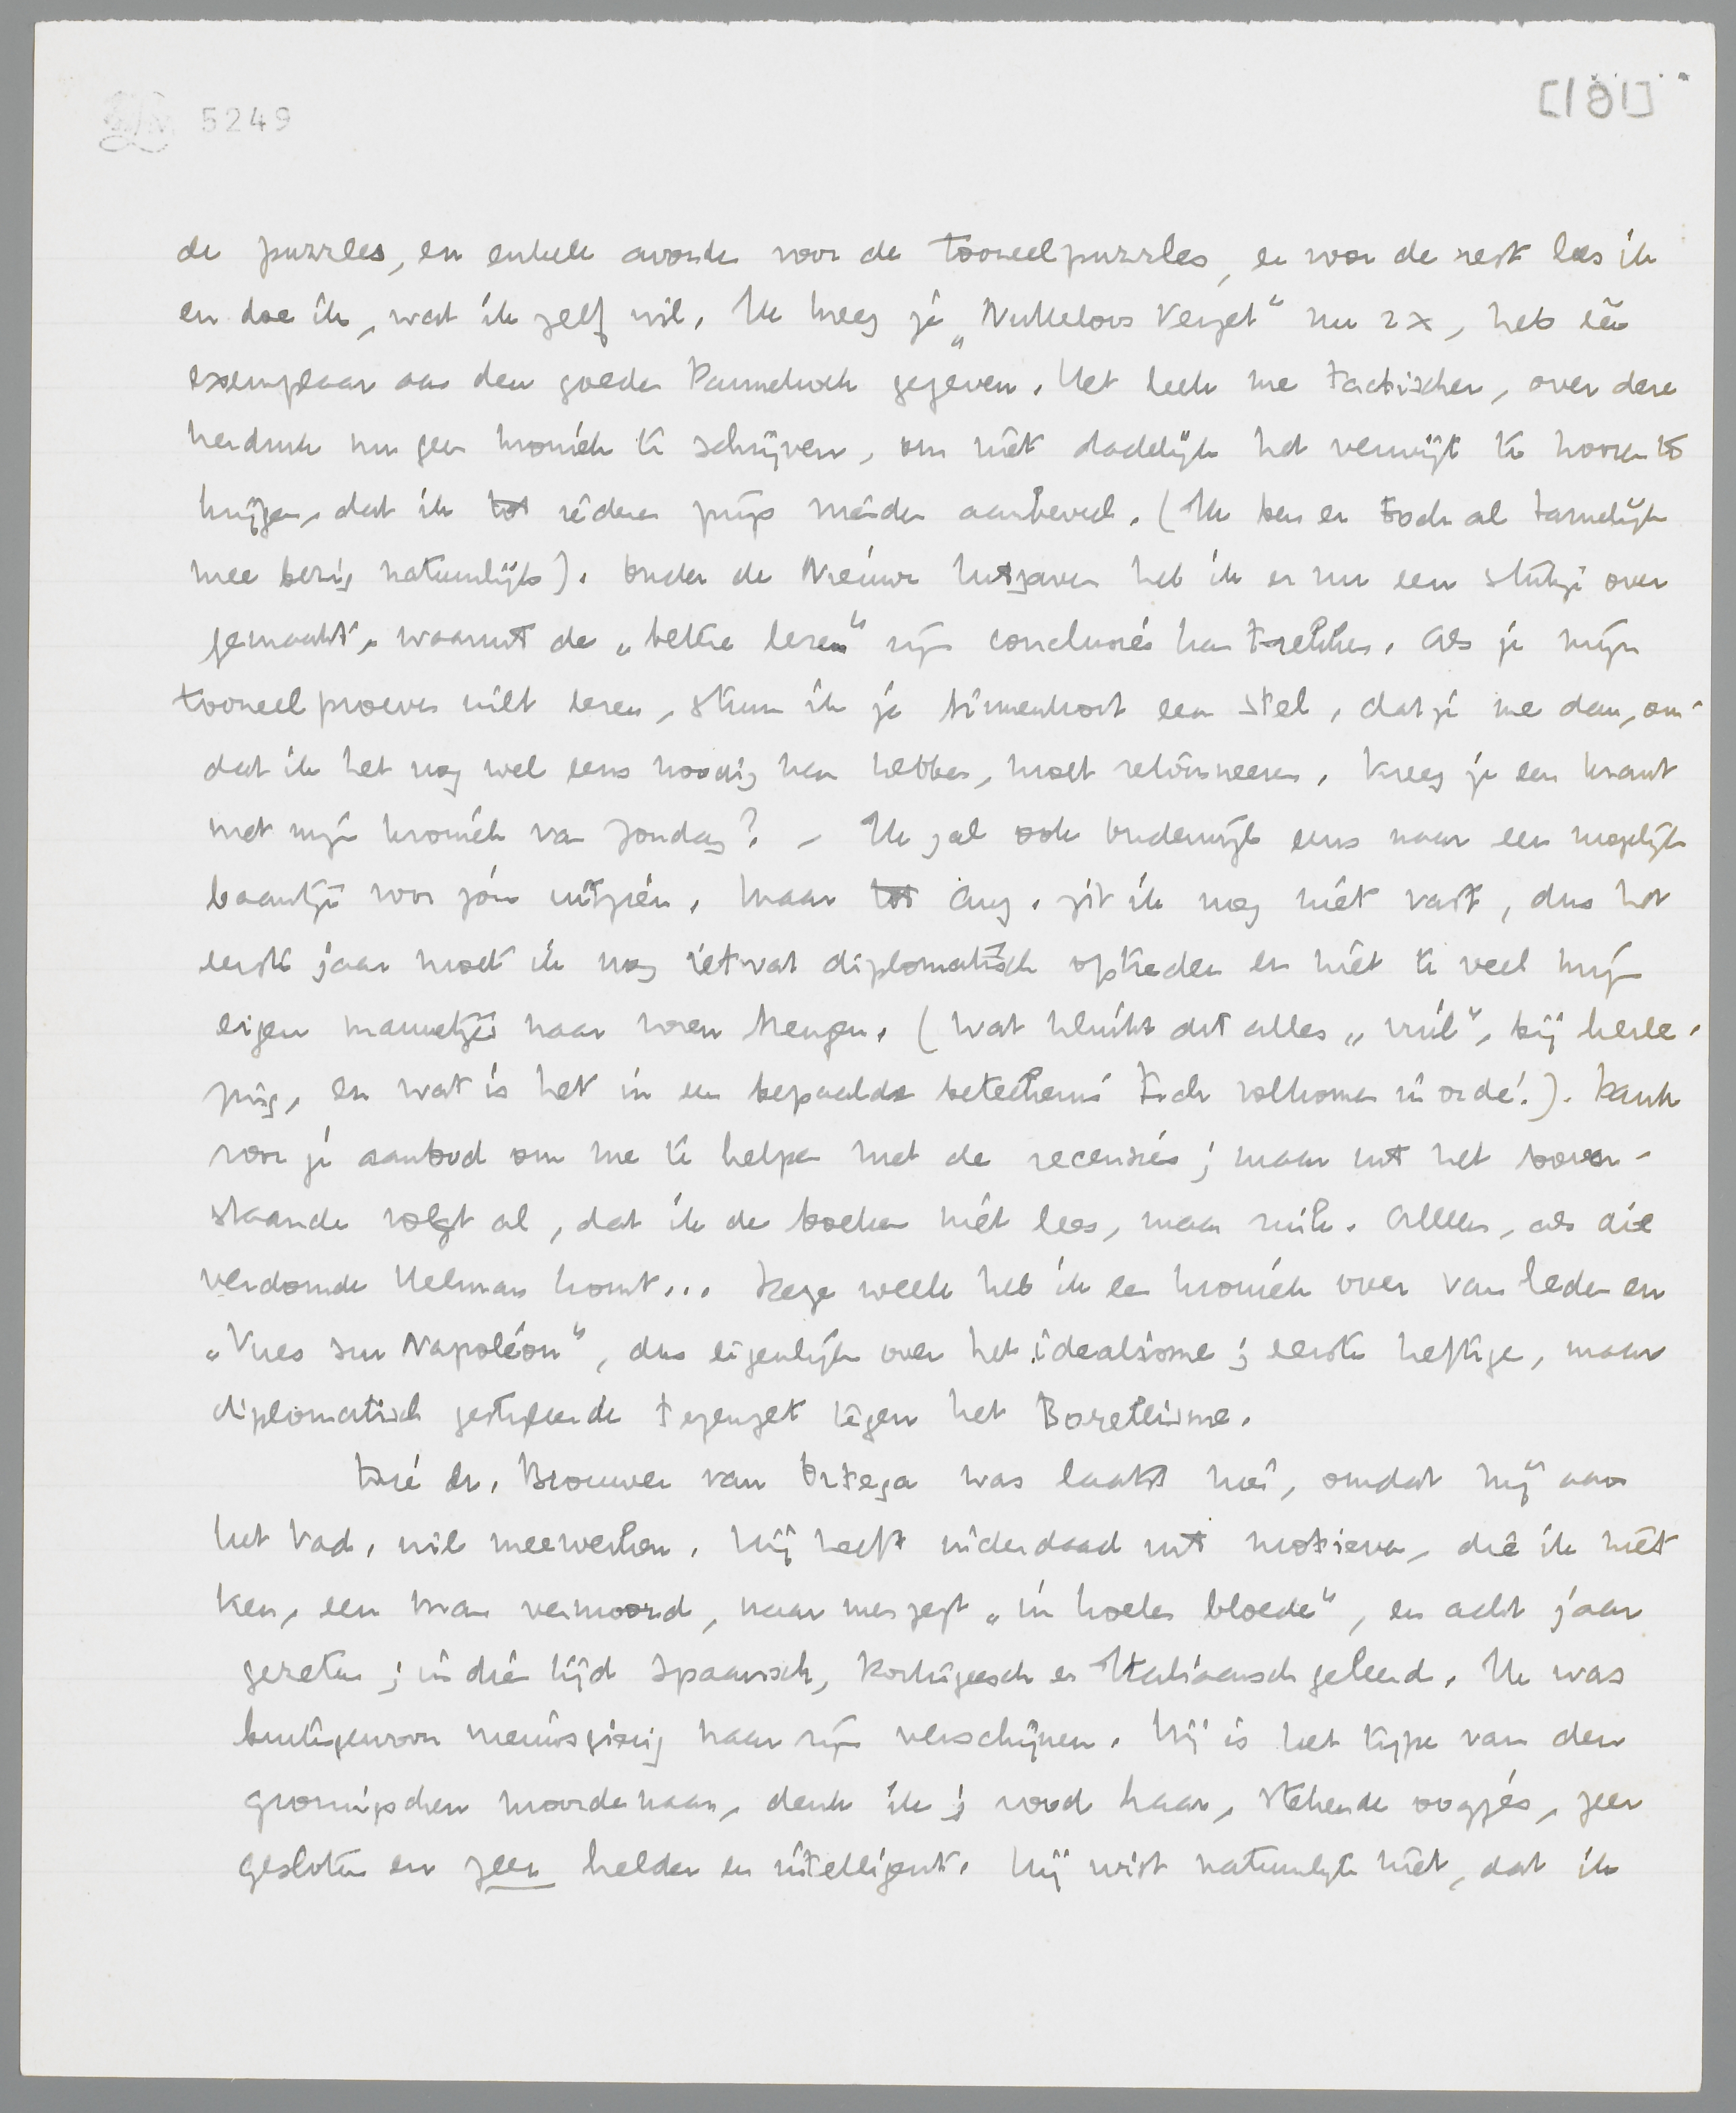 5249
[181]
de puzzles, en enkele avonden voor de tooneelpuzzles, en voor de rest lees ik
en doe ik, wat ik zelf wil. Ik kreeg je „Nutteloos Verzet" nu 2 x, heb één
exemplaar aan den goeden Pannekoek gegeven. Het leek me tactischer, over dezen
herdruk nu geen kroniek te schrijven, om niet dadelijk het verwijt te hooren te
krijgen, dat ik tot iederen prijs vrienden aanbeveel. (Ik ben er toch al tamelijk
mee bezig natuurlijk). Onder de Nieuwe Uitgaven heb ik er nu een stukje over
gemaakt, waaruit de „betere lezer" zijn conclusies kan trekken. Als je mijn
tooneelproeven wilt lezen, stuur ik je binnenkort een stel, dat je me dan, om-
dat ik het nog wel eens noodig kan hebben, moet retourneeren. Kreeg je een krant
met mijn kroniek van Zondag? – Ik zal ook onderwijl eens naar een mogelijk
baantje voor jou uitzien. Maar tot Aug. zit ik nog niet vast, dus het
eerste jaar moet ik nog ietwat diplomatisch optreden en niet te veel mijn
eigen mannetjes naar voren brengen. (Wat klinkt dit alles „vuil", bij herle-
zing, en wat is het in een bepaalde beteekenis toch volkomen in orde!). Dank
voor je aanbod om me te helpen met de recensies; maar uit het boven-
staande volgt al, dat ik de boeken niet lees, maar ruik. Alleen, als die
verdomde Helman komt... Deze week heb ik een kroniek over van Leden en
„Vues sur Napoléon", dus eigenlijk over het idealisme; eerste heftige, maar
diplomatisch gestyleerde tegenzet tegen het Borelisme.
Die dr. Brouwer van Ortega was laatst hier, omdat hij aan
het Vad. wil meewerken. Hij heeft inderdaad uit motieven, die ik niet
ken, een man vermoord, naar men zegt „in koelen bloede", en acht jaar
gezeten; in dien tijd Spaansch, Portugeesch en Italiaansch geleerd. Ik was
buitengewoon nieuwsgierig naar zijn verschijnen. Hij is het type van den
Groningschen moordenaar, denk ik; rood haar, stekende oogjes, zeer
gesloten en zeer helder en intelligent. Hij wist natuurlijk niet, dat ik